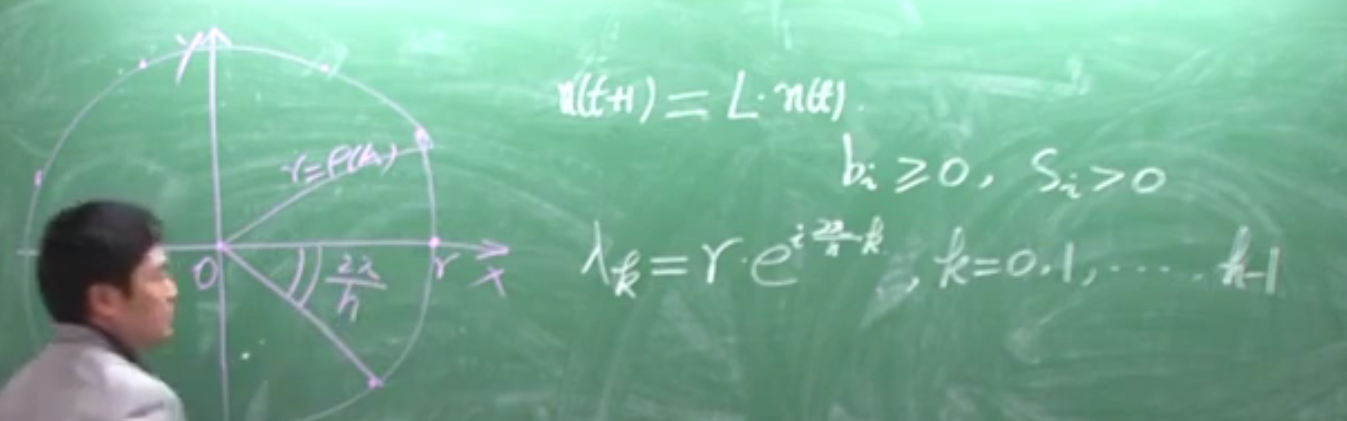 y
r=ρ(A)
O
2π/h
r
x
n(t+1) = L·n(t).
b_i ≥ 0, S_i > 0
λ_k = r·e^{i 2π/h·k}, k=0,1,⋯⋯ h-1